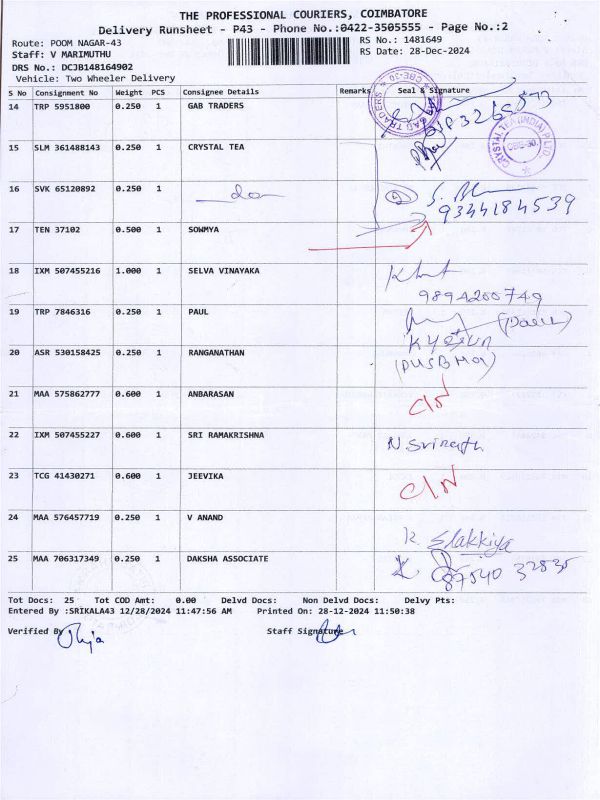 THE PROFESSIONAL COURIERS, COIMBATORE
Delivery Runsheet - P43 - Phone No.:0422-3505555 - Page No.:2
Route: POOM NAGAR-43
RS No.: 1481649
Staff: V MARIMUTHU
RS Date: 28-Dec-2024
DRS No.: DCJB148164902
Vehicle: Two Wheeler Delivery
S No Consignment No Weight PCS Consignee Details Remarks Seal & Signature
14 TRP 5951800 0.250 1 GAB TRADERS
GAB TRADERS CBE-30
15 SLM 361488143 0.250 1 CRYSTAL TEA
CRYSTAL TEA (INDIA) P LTD. CBE-30.
16 SVK 65120892 0.250 1 do
9344184539
17 TEN 37102 0.500 1 SOWMYA
18 IXM 507455216 1.000 1 SELVA VINAYAKA
9894200749
19 TRP 7846316 0.250 1 PAUL
20 ASR 530158425 0.250 1 RANGANATHAN
21 MAA 575862777 0.600 1 ANBARASAN C/N
22 IXM 507455227 0.600 1 SRI RAMAKRISHNA N. Srinath
23 TCG 41430271 0.600 1 JEEVIKA C/N
24 MAA 576457719 0.250 1 V ANAND
R Elakkiya
25 MAA 706317349 0.250 1 DAKSHA ASSOCIATE
87540 32835
Tot Docs: 25 Tot COD Amt: 0.00 Delvd Docs: Non Delvd Docs: Delvy Pts:
Entered By :SRIKALA43 12/28/2024 11:47:56 AM Printed On: 28-12-2024 11:50:38
Verified By Staff Signature